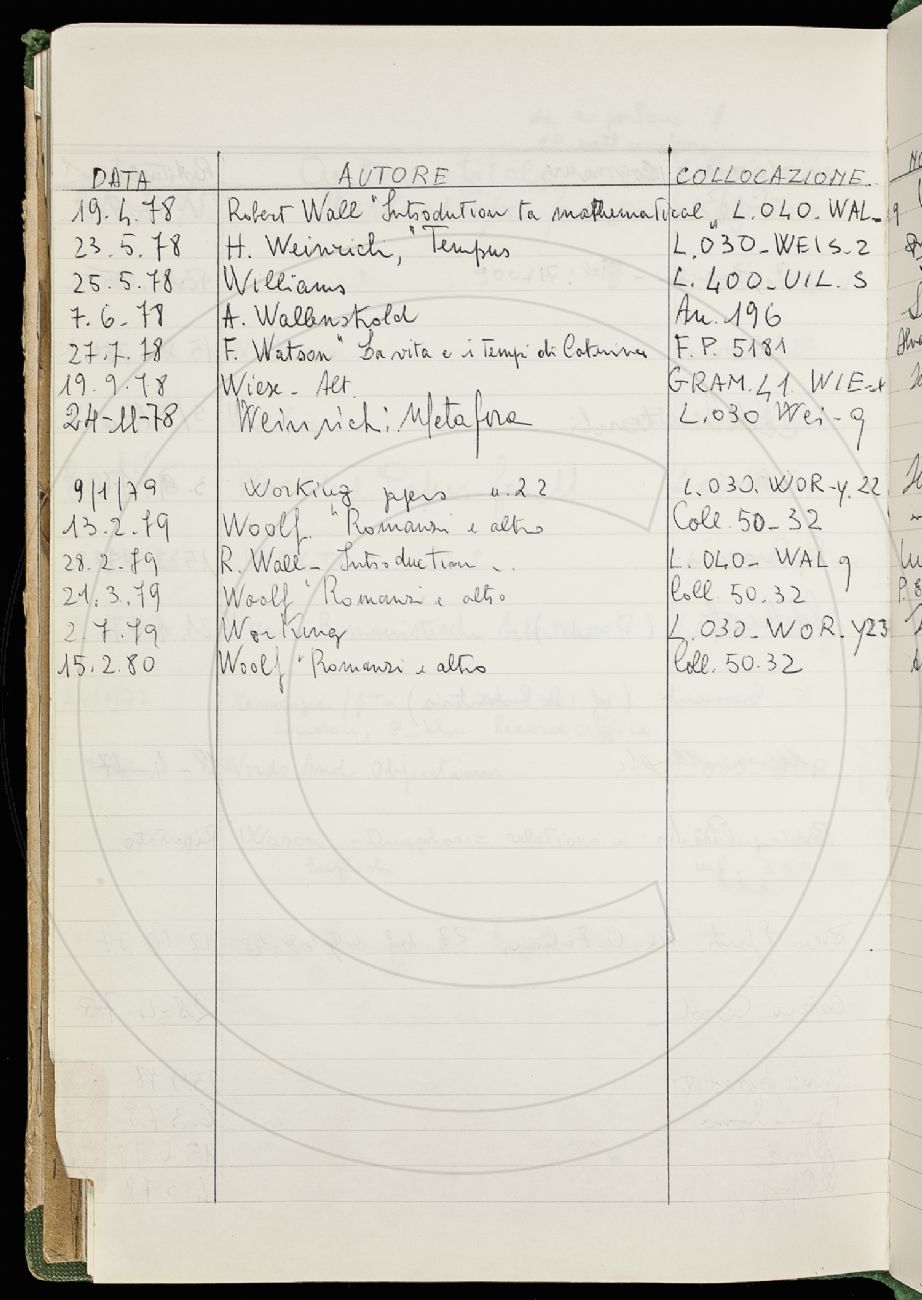 DATA AUTORE COLLOCAZIONE
19.4.78 Robert Wall "Introdution ta mathematical" L.040-WAL-g
23.5.78 H. Weinrich, "Tempus L.030-WEIS-2
25.5.78 Williams L.400-UIL.S
7.6-78 A. Wallenskold An.196
27.7.78 F. Watson "La vita e i Tempi di Caterina F.P. 5181
19.9.78 Wiese - Alt. GRAM.41.WIE
24-11-78 Weinrich: Metafora L.030 Wei-g
9/1/79 Working ppers n.22 L.030.WOR-y.22
13.2.79 Woolf. "Romanzi e altro Coll.50-32
28.2.79 R. Wall - Introduction .. L.040-WAL g
21.3.79 Woolf "Romanzi e altro Coll.50.32
2.7.79 Working L.030-WOR.y23
15.2.80 Woolf "Romanzi e altro Coll.50.32